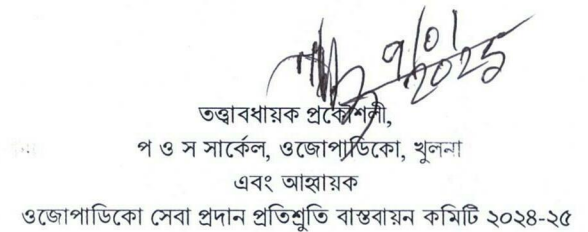 ৭/০১
২০২৫
তত্ত্বাবধায়ক প্রকৌশলী,
প ও স সার্কেল, ওজোপাডিকো, খুলনা
এবং আহ্বায়ক
ওজোপাডিকো সেবা প্রদান প্রতিশ্রুতি বাস্তবায়ন কমিটি ২০২৪-২৫